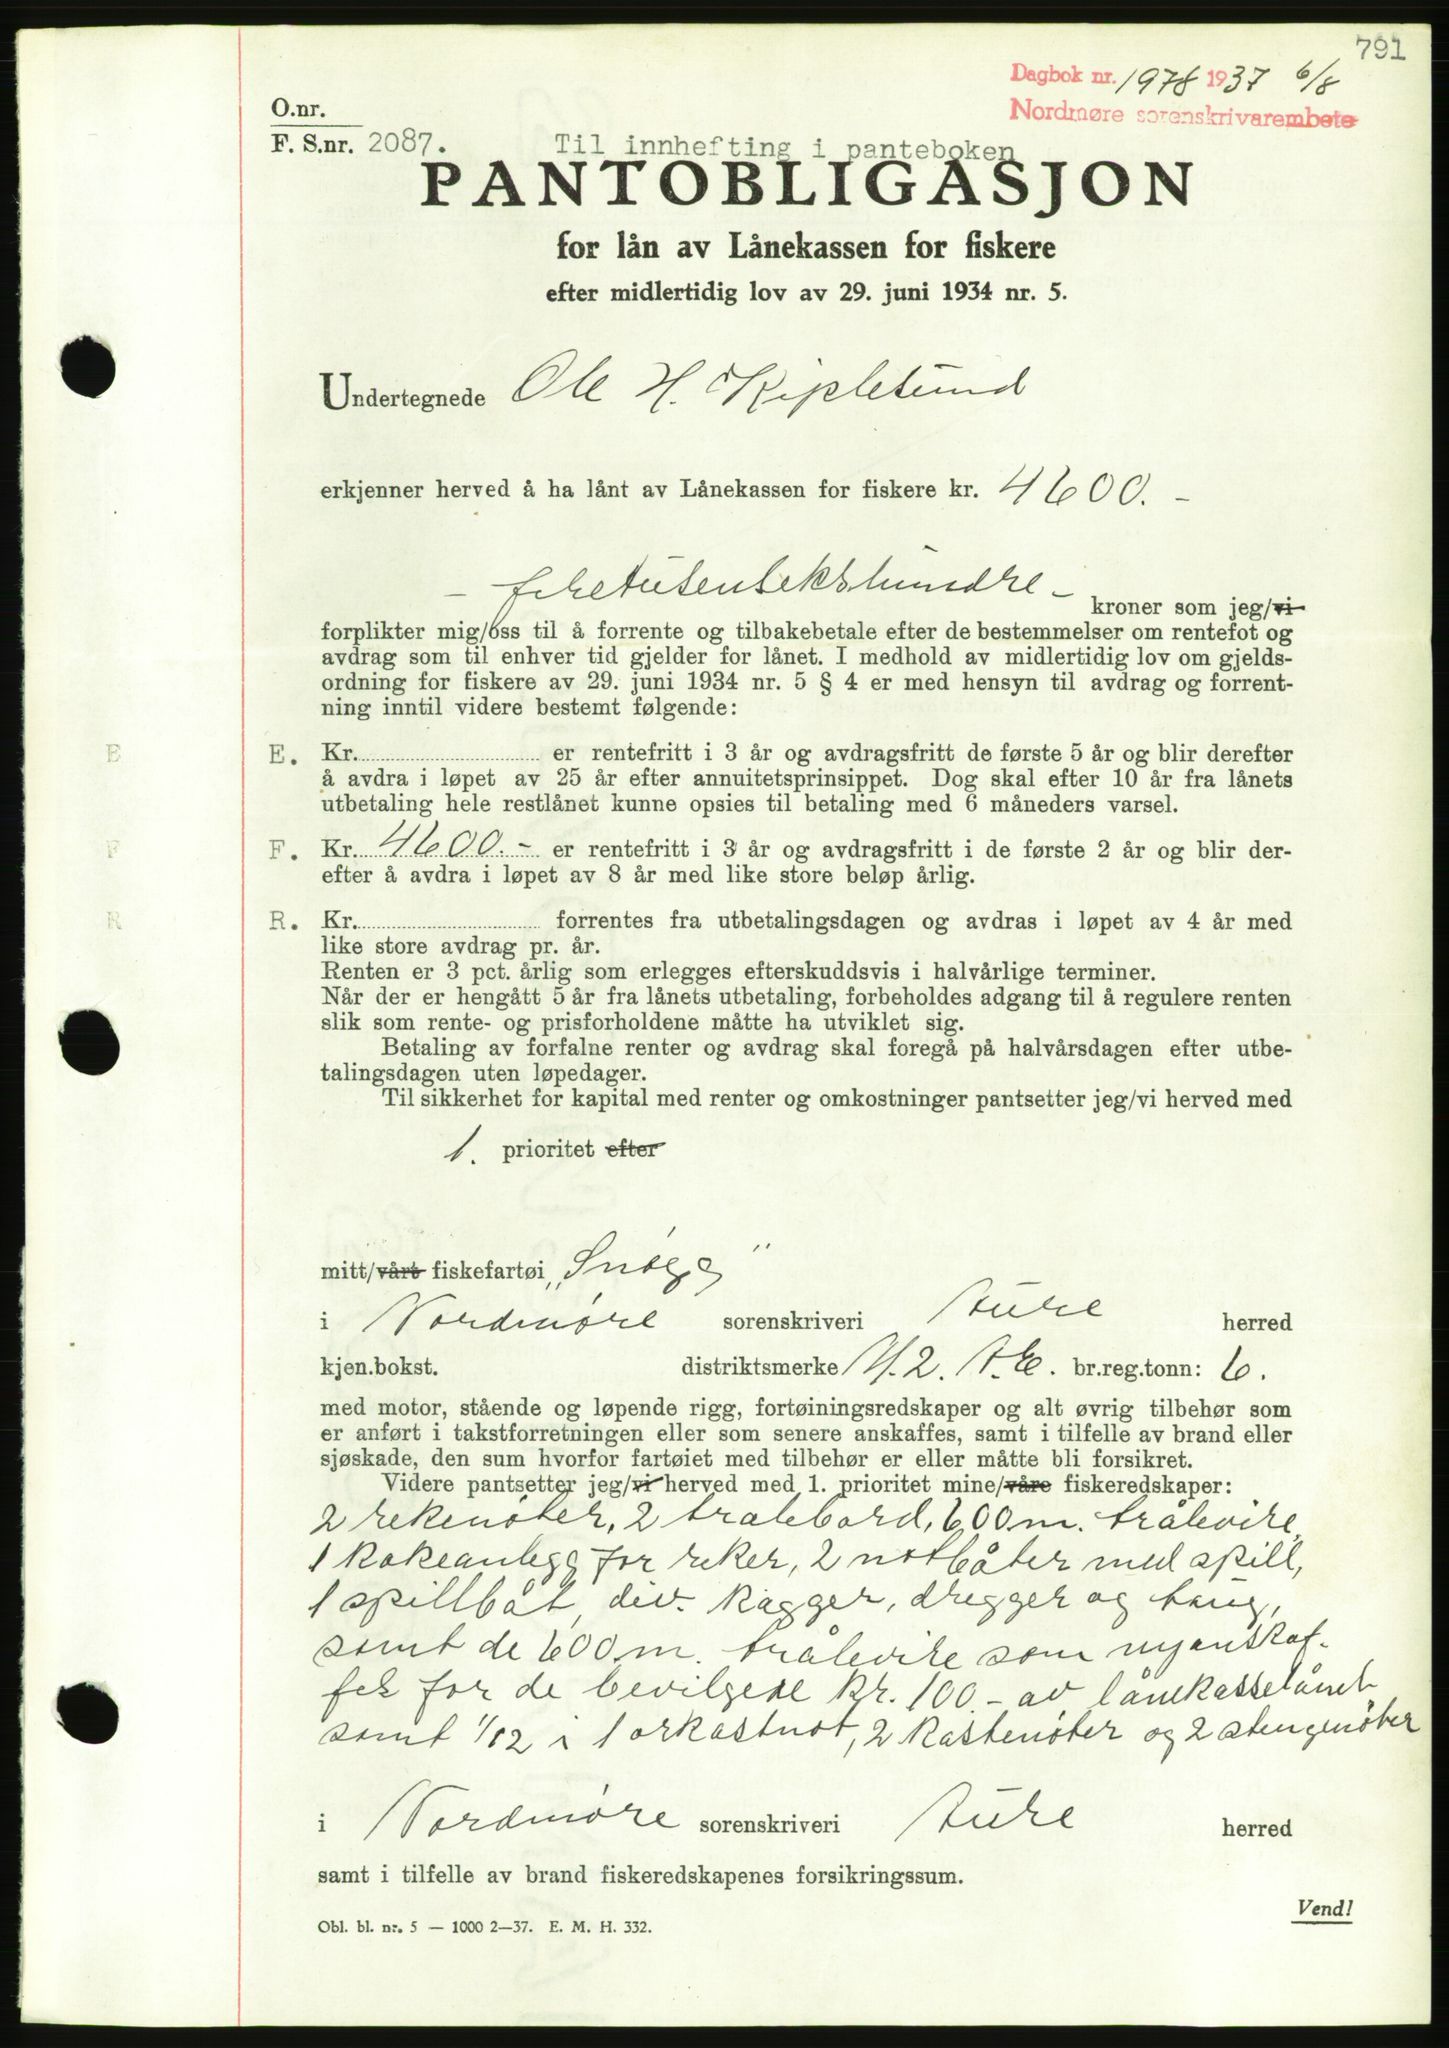 791
Dagbok nr. 1978 1937 6/8
Nordmøre sorenskrivarembete
O.nr.
F. S.nr. 2087.
Til innhefting i panteboken
PANTOBLIGASJON
for lån av Lånekassen for fiskere
efter midlertidig lov av 29. juni 1934 nr. 5.
Undertegnede Ole H. Kiplesund
erkjenner herved å ha lånt av Lånekassen for fiskere kr. 4600.-
- firetusenseks hundre - kroner som jeg/vi
forplikter mig/oss til å forrente og tilbakebetale efter de bestemmelser om rentefot og
avdrag som til enhver tid gjelder for lånet. I medhold av midlertidig lov om gjelds-
ordning for fiskere av 29. juni 1934 nr. 5 § 4 er med hensyn til avdrag og forrent-
ning inntil videre bestemt følgende:
E E. Kr. er rentefritt i 3 år og avdragsfritt de første 5 år og blir derefter
å avdra i løpet av 25 år efter annuitetsprinsippet. Dog skal efter 10 år fra lånets
utbetaling hele restlånet kunne opsies til betaling med 6 måneders varsel.
F F. Kr. 4600.- er rentefritt i 3 år og avdragsfritt i de første 2 år og blir der-
efter å avdra i løpet av 8 år med like store beløp årlig.
R R. Kr. forrentes fra utbetalingsdagen og avdras i løpet av 4 år med
like store avdrag pr. år.
Renten er 3 pct. årlig som erlegges efterskuddsvis i halvårlige terminer.
Når der er hengått 5 år fra lånets utbetaling, forbeholdes adgang til å regulere renten
slik som rente- og prisforholdene måtte ha utviklet sig.
Betaling av forfalne renter og avdrag skal foregå på halvårsdagen efter utbe-
talingsdagen uten løpedager.
Til sikkerhet for kapital med renter og omkostninger pantsetter jeg/vi herved med
1. prioritet efter
mitt/vårt fiskefartøi „Snøgg"
i Nordmøre sorenskriveri Aure herred
kjen.bokst. distriktsmerke M. 2. A.E. br.reg.tonn: 6.
med motor, stående og løpende rigg, fortøiningsredskaper og alt øvrig tilbehør som
er anført i takstforretningen eller som senere anskaffes, samt i tilfelle av brand eller
sjøskade, den sum hvorfor fartøiet med tilbehør er eller måtte bli forsikret.
Videre pantsetter jeg/vi herved med 1. prioritet mine/våre fiskeredskaper:
2 rekenøter, 2 tralebord, 600 m. trålevire,
1 kokeanlegg for reker, 2 notbåter med spill,
1 spillbåt, div. kagger, dregger og taug,
samt de 600 m. trålevire som nyanskaf-
fes for de bevilgede kr. 100.- av lånekasselånet
samt 1/12 i 1 orkastnot, 2 kastenøter og 2 stengenøter
i Nordmøre sorenskriveri Aure herred
samt i tilfelle av brand fiskeredskapenes forsikringssum.
Vend!
Obl. bl. nr. 5 — 1000 2—37. E. M. H. 332.